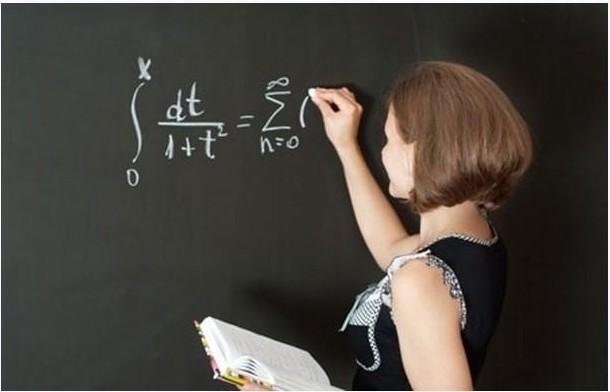 ∫₀ˣ dt/(1+t²) = ∑ₙ₌₀^∞ (